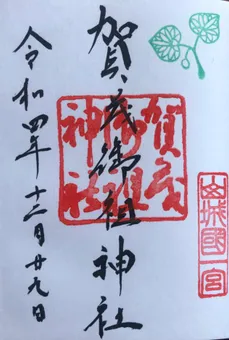 山城國一宮
賀茂御祖神社
賀茂御祖神社
令和四年十二月廿九日